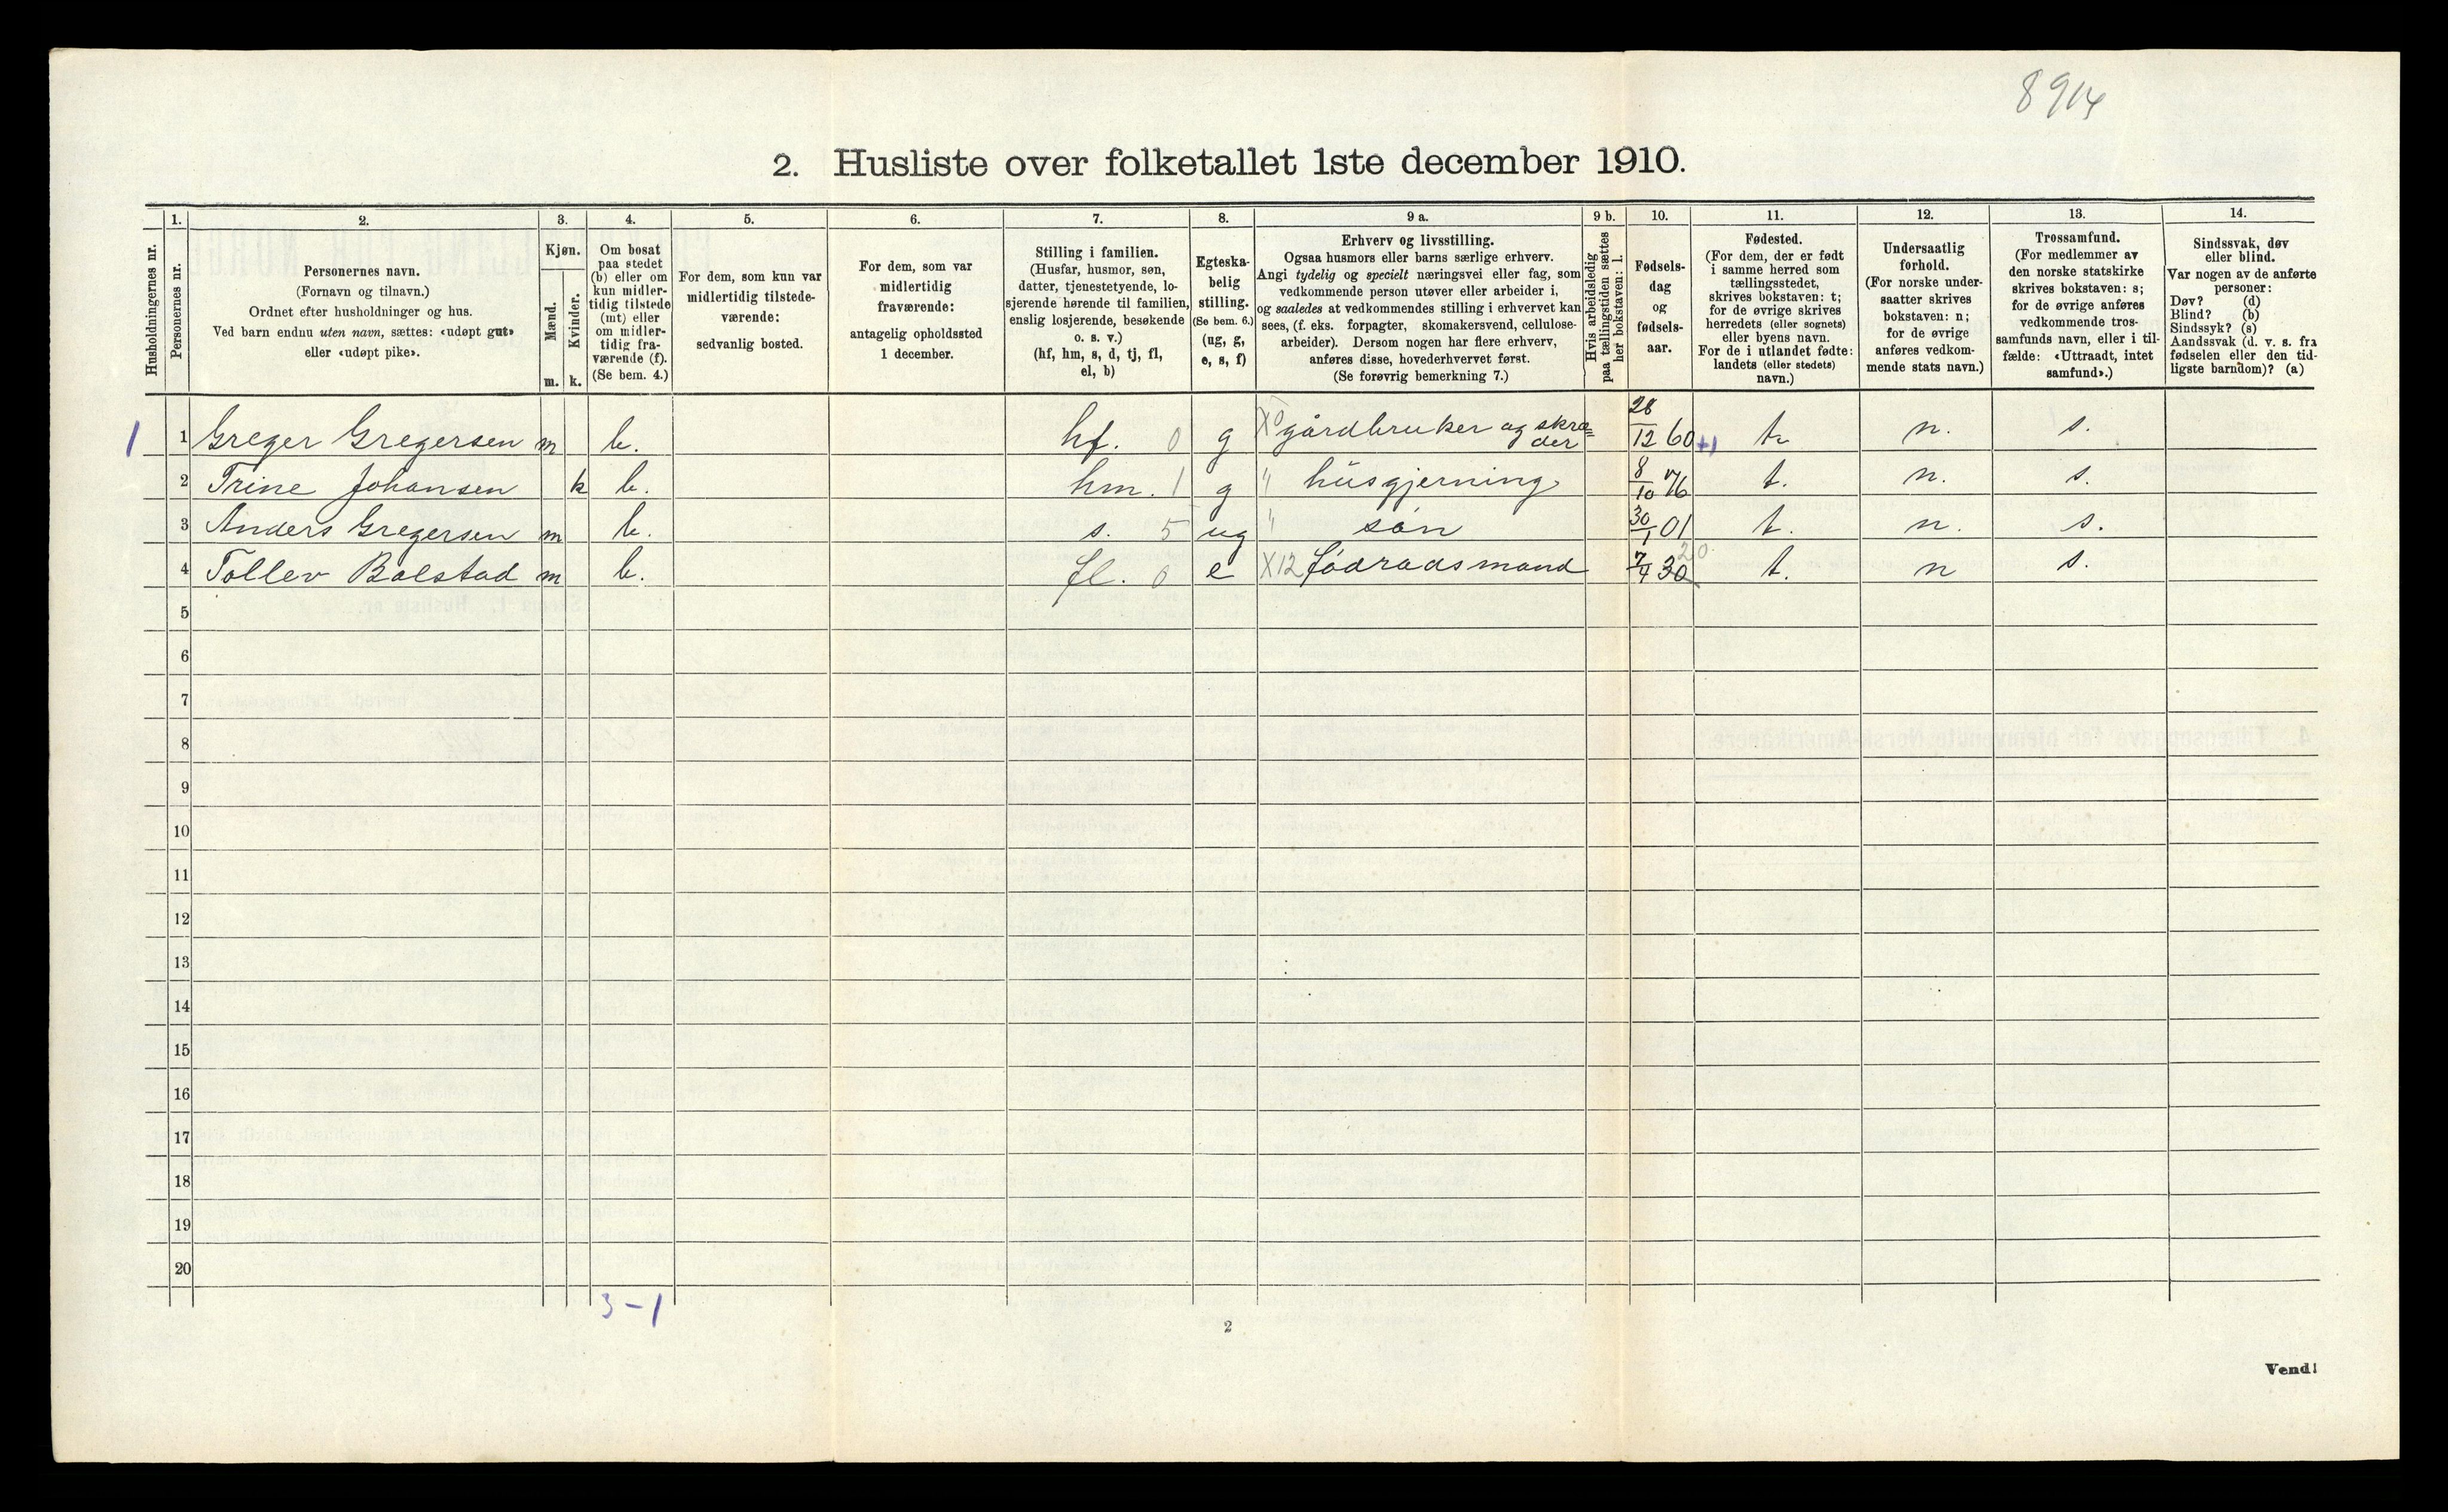 8914
2. Husliste over folketallet 1ste december 1910.
Husholdningernes nr.
1.
Personernes nr.
2.
Personernes navn.
(Fornavn og tilnavn.)
Ordnet efter husholdninger og hus.
Ved barn endnu uten navn, sættes: «udøpt gut»
eller «udøpt pike».
3.
Kjøn.
Mænd.
Kvinder.
m. k.
4.
Om bosat
paa stedet
(b) eller om
kun midler-
tidig tilstede
(mt) eller
om midler-
tidig fra-
værende (f).
(Se bem. 4.)
5.
For dem, som kun var
midlertidig tilstede-
værende:
sedvanlig bosted.
6.
For dem, som var
midlertidig
fraværende:
antagelig opholdssted
1 december.
7.
Stilling i familien.
(Husfar, husmor, søn,
datter, tjenestetyende, lo-
sjerende hørende til familien,
enslig losjerende, besøkende
o. s. v.)
(hf, hm, s, d, tj, fl,
el, b)
8.
Egteska-
belig
stilling.
(Se bem. 6.)
(ug, g,
e, s, f)
9 a.
Erhverv og livsstilling.
Ogsaa husmors eller barns særlige erhverv.
Angi tydelig og specielt næringsvei eller fag, som
vedkommende person utøver eller arbeider i,
og saaledes at vedkommendes stilling i erhvervet kan
sees, (f. eks. forpagter, skomakersvend, cellulose-
arbeider). Dersom nogen har flere erhverv,
anføres disse, hovederhvervet først.
(Se forøvrig bemerkning 7.)
9 b.
Hvis arbeidsledig
paa tællingstiden sættes
her bokstaven: l.
10.
Fødsels-
dag
og
fødsels-
aar.
11.
Fødested.
(For dem, der er født
i samme herred som
tællingsstedet,
skrives bokstaven: t;
for de øvrige skrives
herredets (eller sognets)
eller byens navn.
For de i utlandet fødte:
landets (eller stedets)
navn.)
12.
Undersaatlig
forhold.
(For norske under-
saatter skrives
bokstaven: n;
for de øvrige
anføres vedkom-
mende stats navn.)
13.
Trossamfund.
(For medlemmer av
den norske statskirke
skrives bokstaven: s;
for de øvrige anføres
vedkommende tros-
samfunds navn, eller i til-
fælde: «Uttraadt, intet
samfund».)
14.
Sindssvak, døv
eller blind.
Var nogen av de anførte
personer:
Døv? (d)
Blind? (b)
Sindssyk? (s)
Aandssvak (d. v. s. fra
fødselen eller den tid-
ligste barndom)? (a)
1 1 Greger Gregersen m b. hf. 0 g X0 gårdbruker og skræ=der 28/12 60 +1 t. n. s.
2 Trine Johansen k b. hm. 1 g " húsgjerning 8/10 76 t. n. s.
3 Anders Gregersen m b. s. 5 ug " søn 30/1 01 t. n. s.
4 Tollev Bolstad m b. fl. 0 e X12 födradsmand 7/4 30 20. t. n s.
5
6
7
8
9
10
11
12
13
14
15
16
17
18
19
20
3-1
2
Vend!